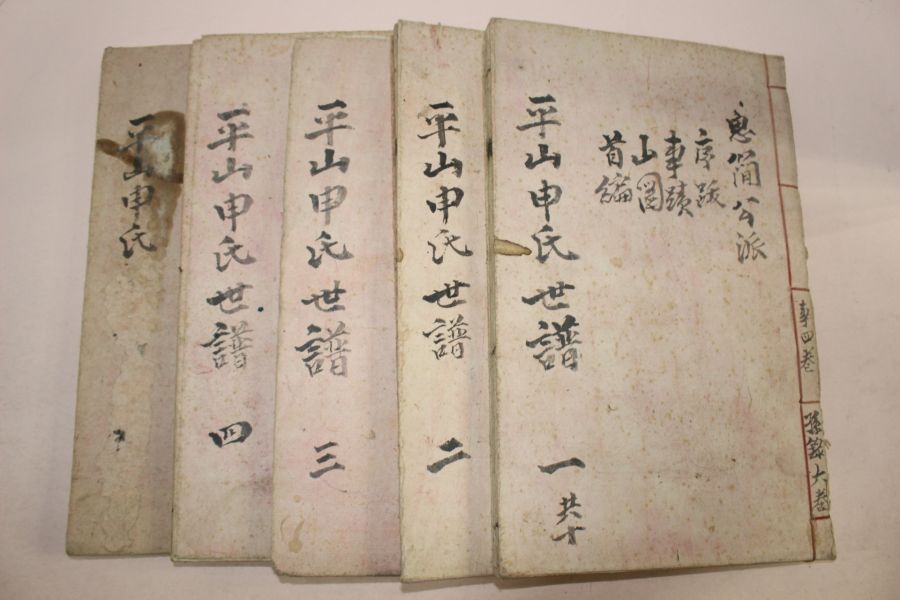 惠簡公派
序跋
事蹟
山圖
首編
平山申氏世譜 一 共十
事四卷
孫錄大卷
平山申氏世譜 二
平山申氏世譜 三
平山申氏世譜 四
平山申氏